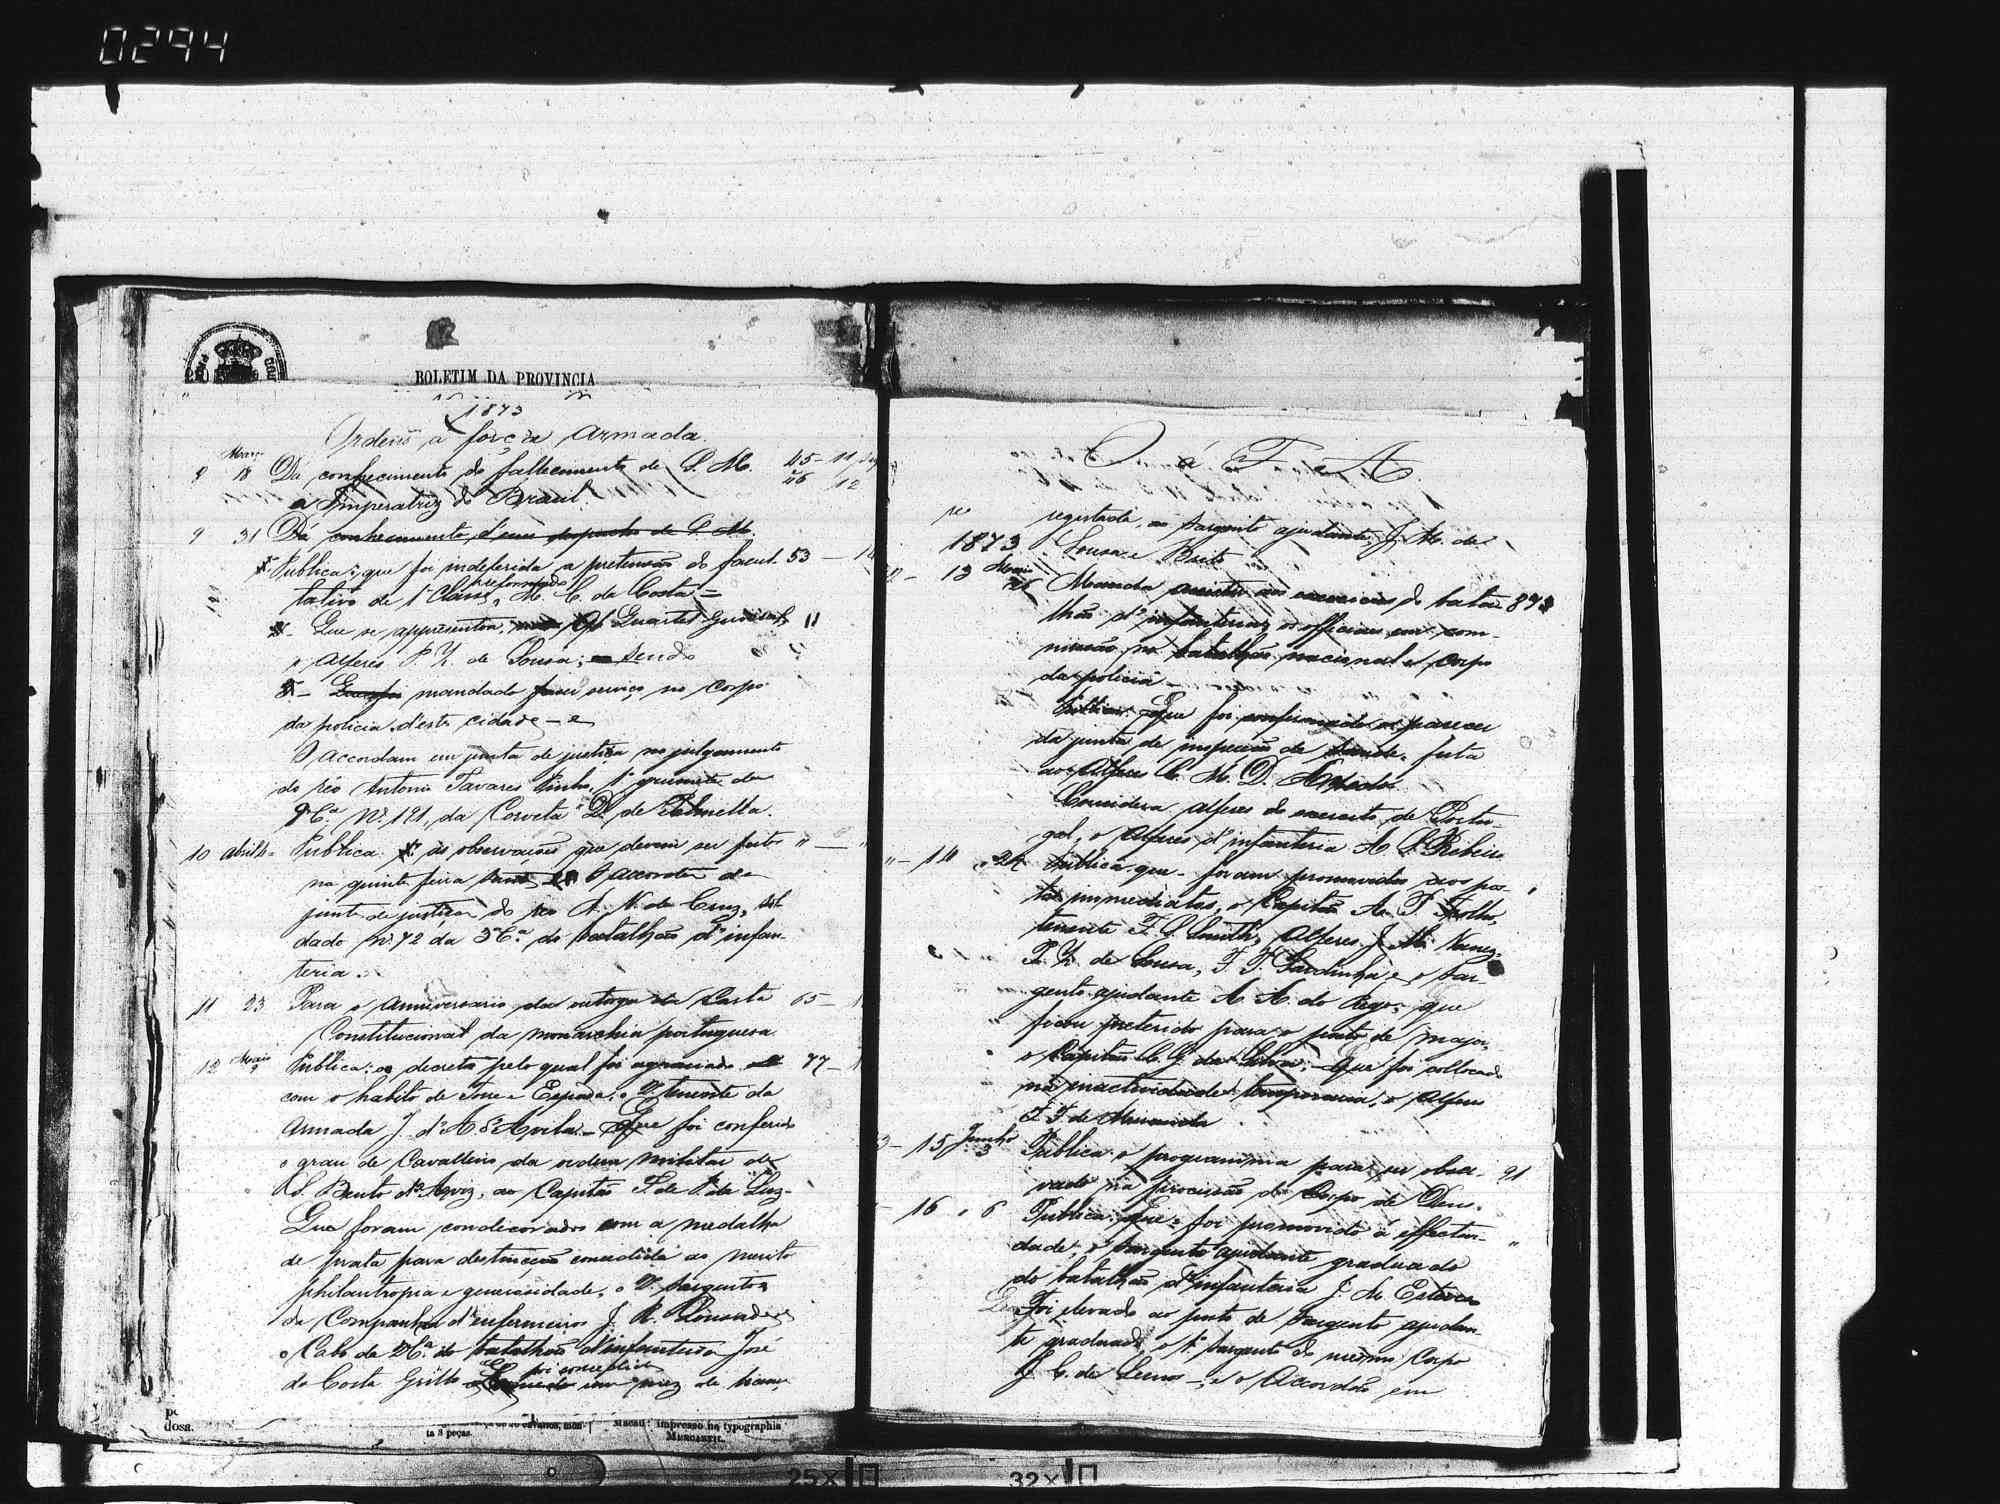 0294
BOLETIM DA PROVINCIA
1873
Ordens á força armada.
8 Março 18 Dá conhecimento do fallecimento de S. M. 45 11
a Imperatriz do Brazil 46 12
9 31 Dá conhecimento d'um despacho de S. M.
Publica: que foi indeferida a pretensão do facul- 53
tativo de 1ª Classe, reformado M. C. da Costa =
Que se appresentou, Quartel General, "
o Alferes P. H. de Sousa; sendo
mandado fazer serviço no Corpo
da policia d'esta cidade - e
O accordam em junta de justiça no julgamento
do réo Antonio Tavares Pinho, 1º grumete da
Cª Nº 121, da Corveta D. de Palmella.
10 abril 4 Publica: as observações que devem ser feitas "
na quinta feira santa O accordão da
junta de justiça do réo A. N. da Cruz, sol-
dado nº 72 da 3ª Cª do batalhão d'infan-
teria.
11 23 Para o anniversario da outorga da Carta 65
Constitucional da monarchia portuguesa.
12 Maio 9 Publica: o decreto pelo qual foi agraciado 77
com o habito de Torre e Espada, o 2º tenente da
Armada J. d'A. d'Avila - Que foi conferido
o grau de Cavalleiro da ordem militar de
S. Bento d'Aviz, ao Capitão F. de P. da Luz -
Que foram condecorados com a medalha
de prata para destincção concedida ao merito
philantropia e generosidade, o 2º sargento
da Companhia d'enfermeiros J. R.
o Cabo da 2ª Cª do batalhão d'infanteria José
da Costa Grillo
de
dosa.
ta 3 peças.
Macau: Impresso na typographia
MERCANTIL.
O á F A
registada, ao sargento ajudante J. M. de
1873 Sousa e Brito
13 Maio Manda assistir aos exercicios do bata- 87
lhão d'infanteria, os officiaes em com-
missão no batalhão nacional e corpo
da policia -
Publica: Que foi confirmado o parecer
da junta de inspecção de saude, feita
ao Alferes C. M. D. Azedo
Considera alferes do exercito de Portu-
gal, o Alferes d'infanteria A. S. Ribeiro
14 24 Publica que - foram promovidos aos pos- "
tos immediatos, o Capitão A. J.
tenente F. S. Smith, Alferes J. M. Nunes,
P. H. de Sousa, F. F. Sardinha e o sar-
gento ajudante A. A. do Rego; que
ficou preterido para o posto de major,
o Capitão C. J. da Silva; - Que foi collocado
na inactividade temporaria, o Alferes
F. F. de Miranda
15 Junho 3 Publica o programma para ser obser- 91
vado na procissão do Corpo de Deus.
16 6 Publica: Que - foi promovido á effectivi- "
dade, o sargento ajudante graduado
do batalhão d'infanteria J. M. Esteves
Foi elevado ao posto de sargento ajudan-
te graduado, o 1º sargento do mesmo Corpo
J. C. de Lemos -, e o Accordão em
25X
32X